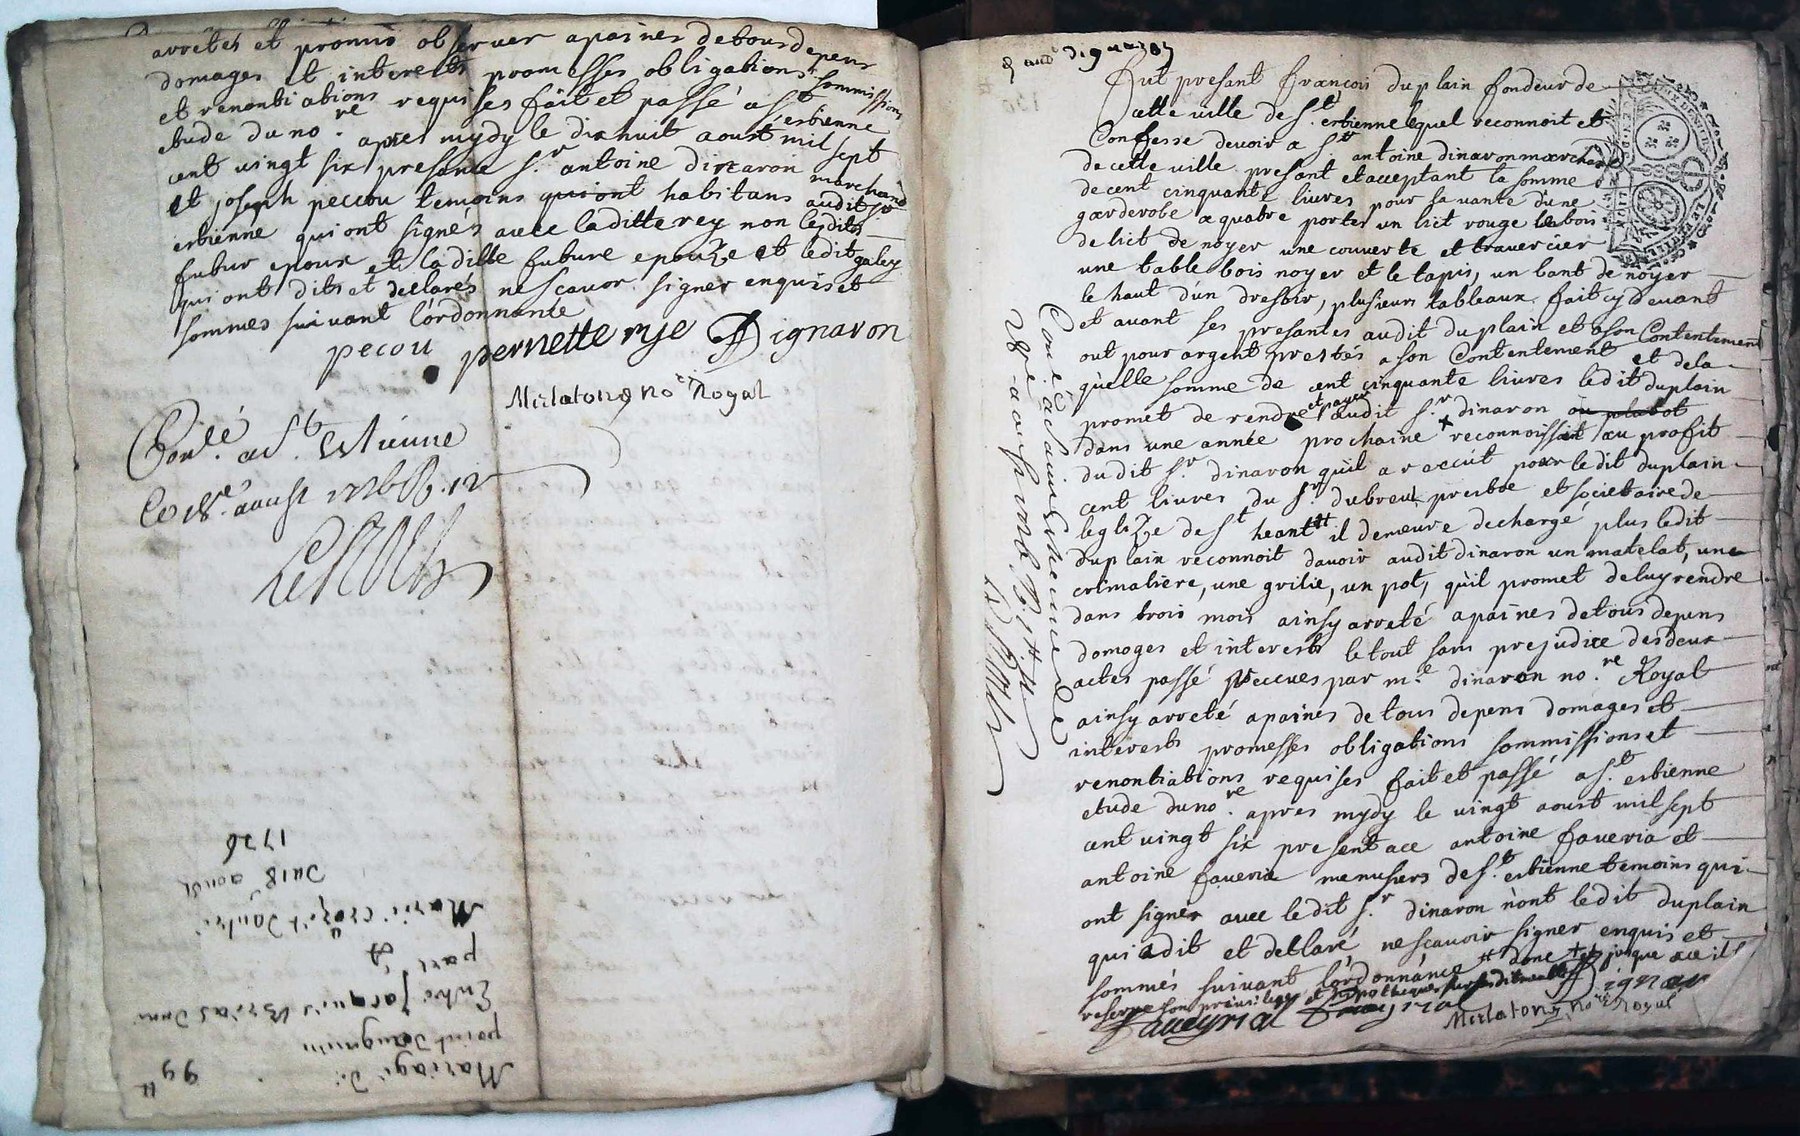 arrêtés et promis observer apaines detous depens
domages et interests promesses obligations sommissions
et renontiations requises fait et passé a st estienne
etude du nore apres mydy le dixhuit aoust mil sept
cent vingt six presance sr antoine dinaron marchand
et joseph peccou temoins quiont habitans audit st
estienne qui ont signés avec laditte rey non lesdits
futur epoux et la ditte future epouze et ledit galey
qui ont dits et declarés ne scavoir signer enquis et
sommes suivant lordonnance
pecou pernette rye Dignaron
Mirlatong nore Royal
Conlé a St Estienne
Le 18e aoust 1726 R. 12
Mariage de
point daugmin
99 tt
Entre Jacques
part &
Marie crozet dautre
Du 18 aoust
1726
Fut presant françois duplain fondeur de
cette ville de st estienne lequel reconnoit et
Confesse devoir a sr antoine dinaron marchand
de cette ville presant et acceptant la somme
de cent cinquante livres pour la vante dune
garderobe a quatre portes un lict rouge le bois
de lict de noyer une couverte et traversier
une table bois noyer et le tapis, un bant de noyer
le haut d'un dressoir, plusieurs tableaux fait cy devant
et avant ses presantes audit duplain et a son Contentement
out pour argent prestés a son Contentement et dela
quelle somme de cent cinquante livres ledit duplain
promet de rendre et payer audit sr dinaron ou plutot
dans une année prochaine + reconnoissant au profit
dudit sr dinaron quil a reccut pour ledit duplain
cent livres du sr dubreul prestre et societaire de
leglize de st heant tt il demeure dechargé plus ledit
duplain reconnoit davoir audit dinaron un matelat, une
crimaliere, une grilie, un pot, quil promet deluy rendre
dans trois mois ainsy arreté apaines detous depens
domages et interests le tout sans prejudice des deux
actes passé reccues par me dinaron nore Royal
ainsy arreté apaines detous depens domages et
interests promesses obligations sommissions et
renontiations requises fait et passé a st estienne
etude du nore apres mydy le vingt aoust mil sept
cent vingt six present ace antoine faveria et
antoine faveria menusiers de st estienne temoins qui
ont signés avec ledit sr dinaron nont ledit duplain
qui a dit et declaré ne scavoir signer enquis et
sommés suivant lordonnance tt donc + et jusque ace il
reserve son privilege et hypotheque sur lesdits meubles Dignaron
faveyrial faveyrial
Mirlatong nore Royal